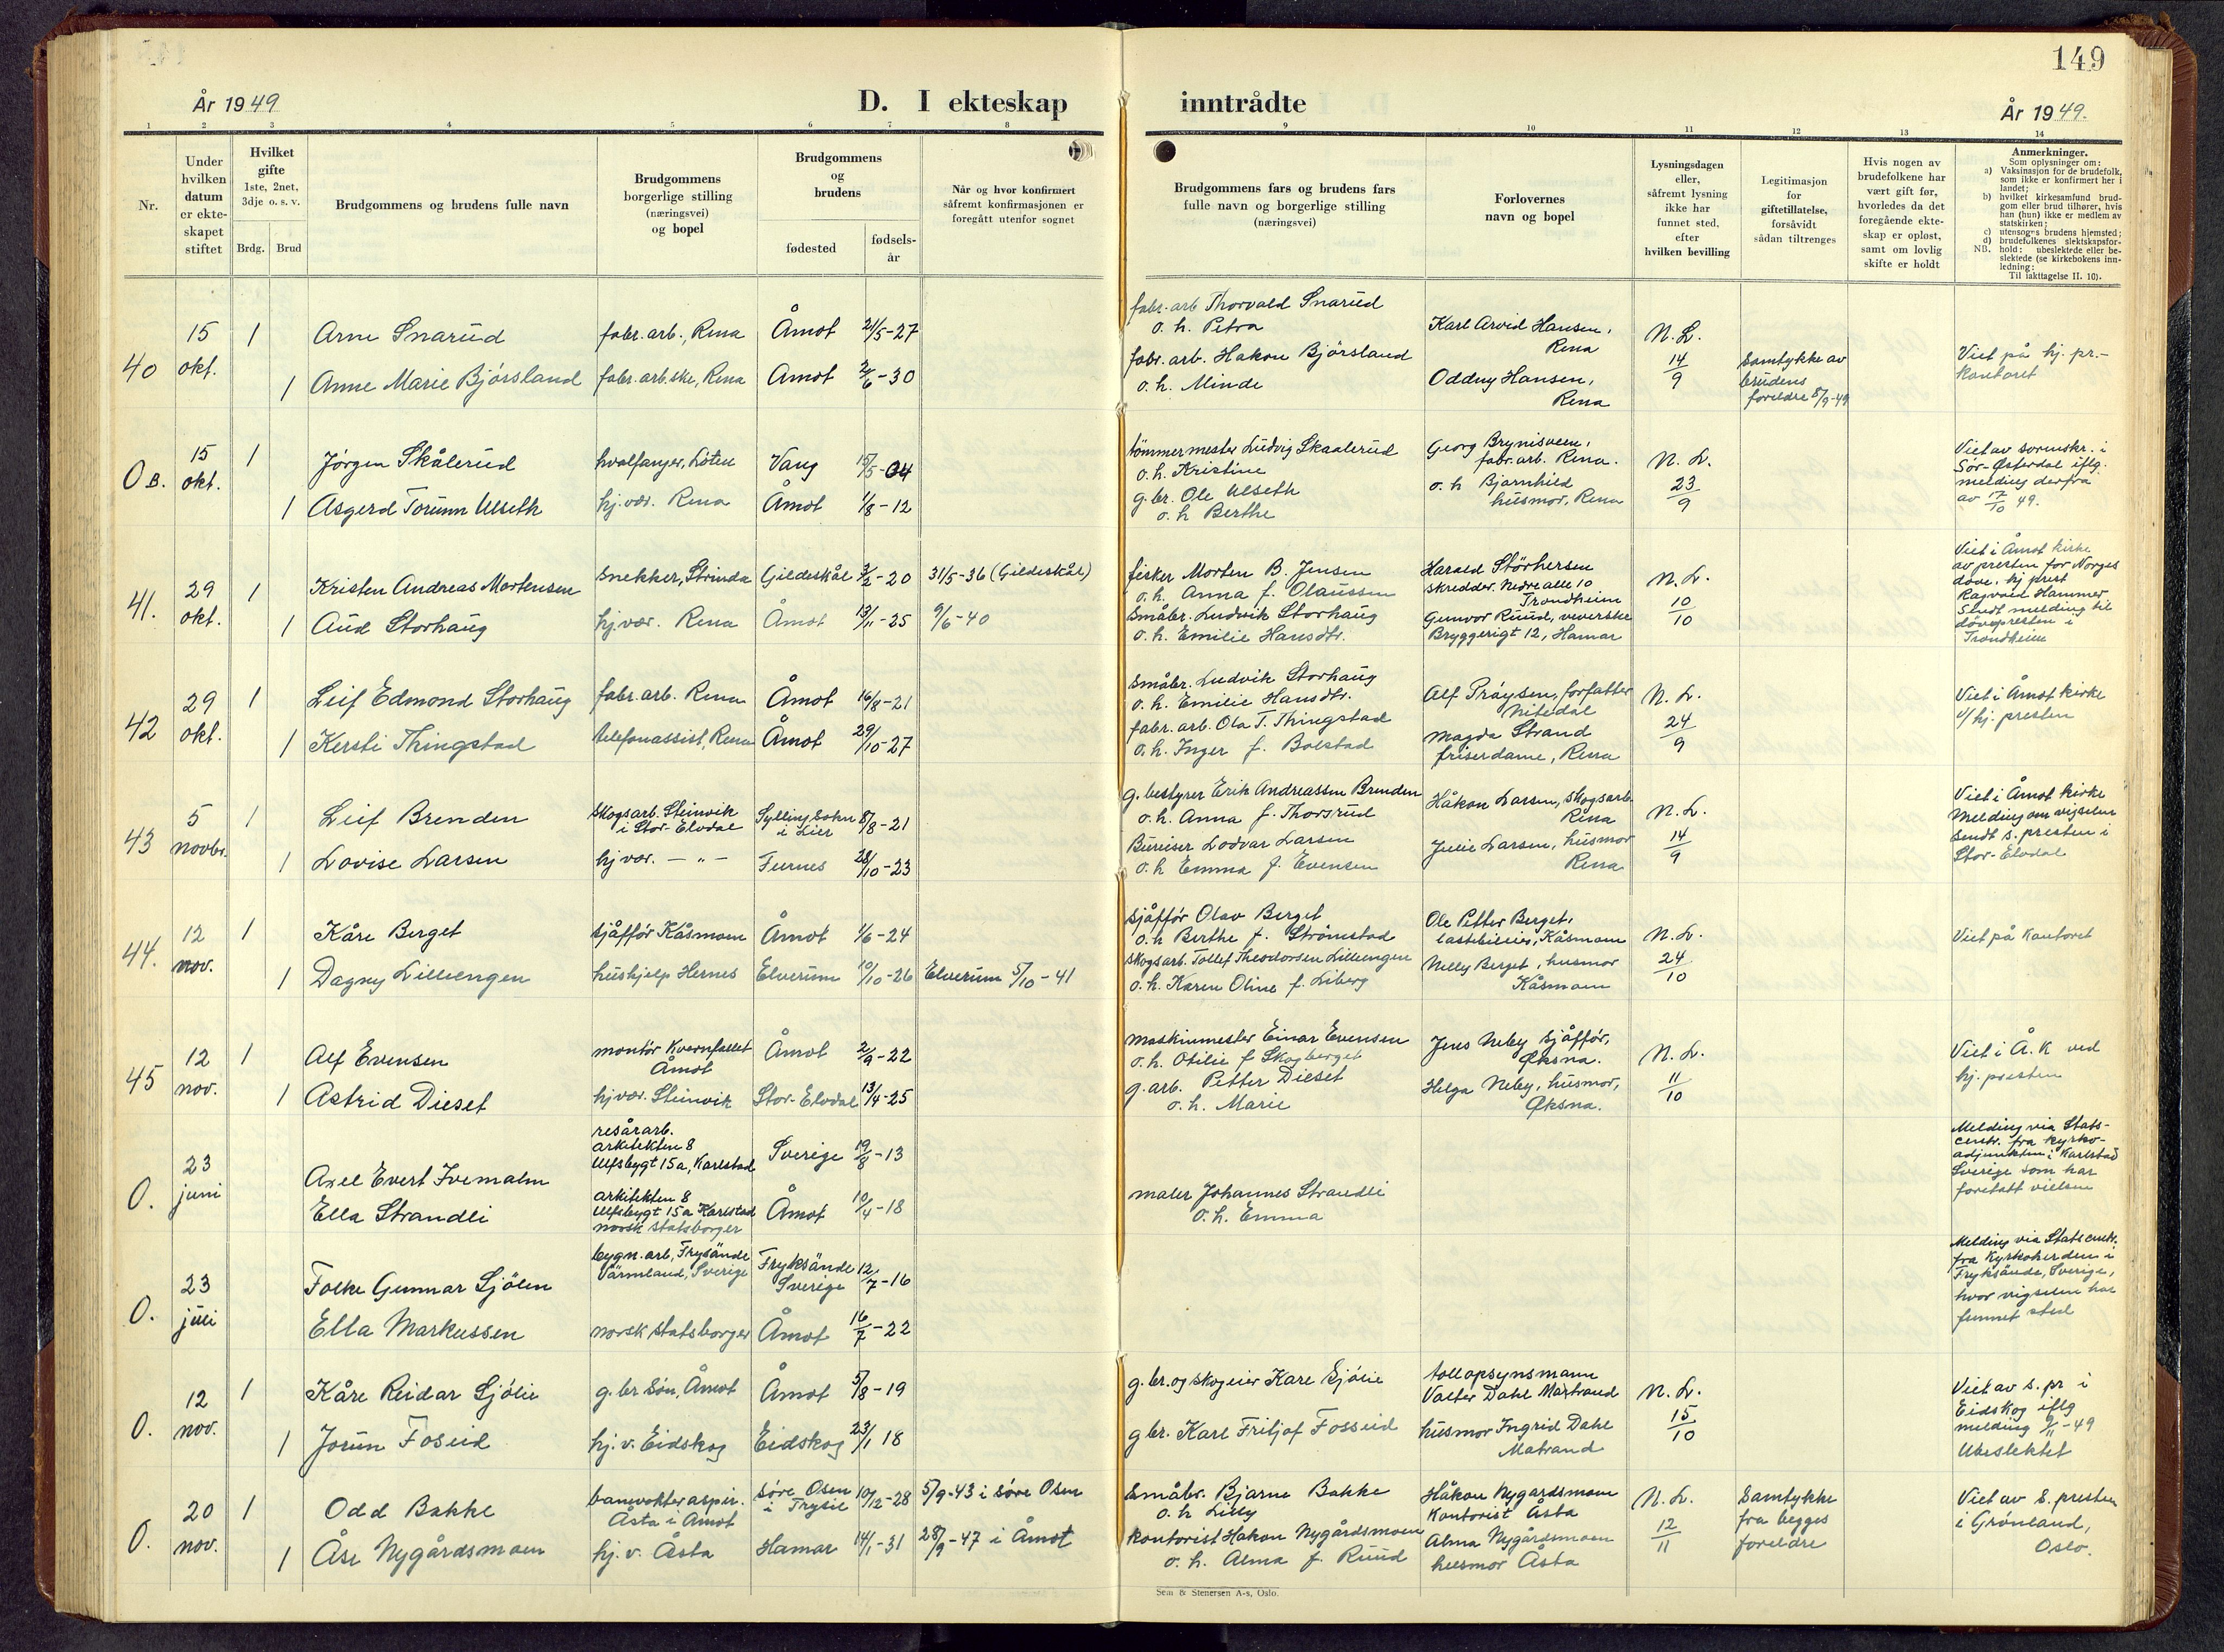 149
År 1949
D. I ekteskap inntrådte
År 1949.
1 2 3 4 5 6 7 8 9 10 11 12 13 14
Nr.
Under hvilken datum er ekte-skapet stiftet
Hvilket gifte 1ste, 2net, 3dje o. s. v.
Brdg. Brud
Brudgommens og brudens fulle navn
Brudgommens borgerlige stilling (næringsvei) og bopel
Brudgommens og brudens
fødested
fødsels-år
Når og hvor konfirmert såfremt konfirmasjonen er foregått utenfor sognet
Brudgommens fars og brudens fars fulle navn og borgerlige stilling (næringsvei)
Forlovernes navn og bopel
Lysningsdagen eller, såfremt lysning ikke har funnet sted, efter hvilken bevilling
Legitimasjon for giftetillatelse, forsåvidt sådan tiltrenges
Hvis nogen av brudefolkene har vært gift før, hvorledes da det foregående ekte-skap er opløst, samt om lovlig skifte er holdt
Anmerkninger.
Som oplysninger om:
a) Vaksinasjon for de brudefolk, som ikke er konfirmert her i landet;
b) hvilket kirkesamfund brud-gom eller brud tilhører, hvis han (hun) ikke er medlem av statskirken;
c) utensogns brudens hjemsted;
d) brudefolkenes slektskapsfor-hold: ubeslektede eller be-slektede (se kirkebokens inn-ledning:
NB. Til iakttagelse II. 10).
40
15 okt.
1 Arne Snarud
fabr. arb., Rena
Åmot 21/5-27
fabr. arb Thorvald Snarud
o. h. Petra
Karl Arvid Hansen,
Rena
N. L.
14/9
1 Anne Marie Bjørsland
fabr. arb.ske, Rena
Åmot 2/6-30
fabr. arb. Hakon Bjørsland
o. h. Minde
Oddny Hansen,
Rena
Samtykke av
brudens
foreldre 8/9-49
Viet på hj. pr.-
kontoret
O B.
15 okt.
1 Jørgen Skålerud
hvalfanger, Løten
Vang 15/5-04
tømmermester Ludvig Skaalerud
o. h. Kristine
Georg Brynisveen,
fabr. arb. Rena.
N. L.
23/9
1 Asgerd Torunn Ulseth
hj. vær. Rena
Åmot 1/8-12
g. br. Ole Ulseth
o. h Berthe
o. h Bjarnhild
husmor, Rena
Viet av sorenskr. i
Sør-Østerdal iflg.
melding derfra
av 17/10 49.
41.
29 okt.
1 Kristen Andreas Mortensen
snekker, Strinda
Gildeskål 3/2-20
31/5-36 (Gildeskål)
fisker Morten B. Jensen
o. h. Anna f. Olaussen
Harald Størhersen
skredder. Nedre alle 10
Trondheim
N. L.
10/10
1 Aud Storhaug
hj. vær. Rena
Åmot 13/11-25
9/6-40
Småbr. Ludvik Storhaug
o. h. Emilie Hansdtr.
Gunvor Ruud, veverske
Bryggerigt 12, Hamar
Viet i Åmot kirke
av presten for Norges
døve, hj prest
Ragvald Hammer
Sendt melding til
døvepresten i
Trondheim
42
29 okt.
1 Leif Edmond Storhaug
fabr. arb. Rena
Åmot 16/8-21
Småbr. Ludvik Storhaug
o. h. Emilie Hansdtr.
Alf Prøysen, forfatter
Nitedal
N. L.
24/9
1 Kersti Thingstad
telefonassist, Rena
Åmot 29/10-27
fabr. arb. Ola T. Thingstad
o. h. Inger f. Bolstad
Magda Strand
frisørdame, Rena
Viet i Åmot kirke
v/ hj. presten
43
5 novbr.
1 Leif Brenden
Skogsarb. Steinvik
i Stor-Elvdal
Syllingbohn
i Lier 8/8-21
g. bestyrer Erik Andreassen Brenden
o. h. Anna f. Thorsrud
Håkon Larsen, skogsarb.
Rena
N. L.
14/9
1 Lovise Larsen
hj vær. — " —
Furnes 28/10-23
Bureiser Lodvar Larsen
o. h Emma f. Evensen
Julie Larsen, husmor
Rena
Viet i Åmot kirke
Melding om vigselen
sendt s. presten i
Stor-Elvdal
44.
12 nov.
1 Kåre Berget
sjåfför Kåsmoen
Åmot 1/6-24
sjåffør Olav Berget
o. h Berthe f. Strømstad
Ole Petter Berget,
lastebileier, Kåsmoen
N. L.
24/10
1 Dagny Lilleengen
hushjelp Hernes
Elverum 10/10-26
Elverum 5/10-41
Skogsarb. Tollef Theodorsen Lilleengen
o. h. Karen Oline f. Liberg
Nelly Berget, husmor
Kåsmoen
Viet på kontoret
45
12 nov.
1 Alf Evensen
montør Kvernfallet
Åmot
Åmot 2/9-22
maskinmester Einar Evensen
o. h. Otilie f Skogberget
Jens Neby sjåffør,
Øksna.
N. L.
11/10
1 Astrid Dieset
hj vær. Steinvik
Stor-Elvdal 13/4-25
g. arb. Petter Dieset
o. h. Marie
Helga Neby, husmor,
Øksna.
Viet i Å. K ved
hj. presten
O.
23 juni
Axel Evert Ivemalm
resårarb.
arkitekten 8
Ulfsbygt 15a, Karlstad
Sverige 19/8-13
Ella Strandli
arkitekten 8
Ulfsbygt 15a Karlstad
norsk statsborger
Åmot 10/4-18
maler Johannes Strandli
o. h. Emma
Melding via Stats-
centr. fra kyrko-
adjunkten i Karlstad
Sverige som har
foretatt vielsen
O.
23 juli
Folke Gunnar Sjölen
bygn. arb, Frysände
Värmland, Sverige
Fryksände
Sverige 12/7-16
Ella Markussen
norsk statsborger
Åmot 16/7-22
Melding via Statscentr.
fra Kyrkoherden i
Fryksände, Sverige,
hvor vigselen har
funnet sted
O.
12 nov.
1 Kåre Reidar Sjølie
g. br. søn, Åmot
Åmot 5/8-19
g. br. og skogeier Kare Sjølie
tollopsynsmann
Valter Dahl Matrand
N. L.
15/10
1 Jorun Foseid
hj. v. Eidskog
Eidskog 23/1 18
g br. Karl Fritjof Fosseid
husmor Ingrid Dahl
Matrand
Viet av s. pr i
Eidskog iflg
melding 9/11-49
Ubeslektet
O.
20 nov.
1 Odd Bakke
banevokteraspir.
Åsta i Åmot
Søre Osen
i Trysil 10/12-28
5/9-43 i søre Osen
Småbr. Bjarne Bakke
o. h Lilly
Håkon Nygårdsmoen
Kontorist Åsta
N. L.
12/11
1 Åse Nygårdsmoen
hj. v. Åsta
Hamar 14/1-31
28/9-47 i Åmot
Kontorist Hakon Nygårdsmoen
o. h. Alma f. Ruud
Alma Nygårdsmoen
husmor Åsta
Samtykke
fra begges
foreldre
Viet av s. presten
i Grønland,
Oslo.
Sem & Stenersen A-s, Oslo.